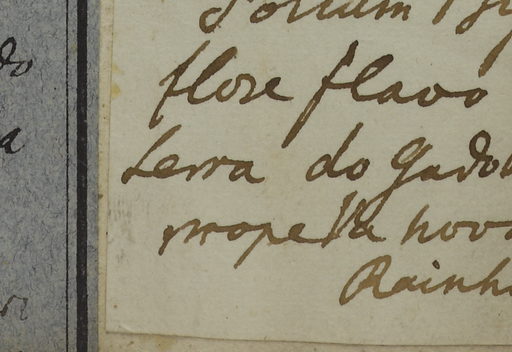 flore flavo
Serra do Gado
prope Va nov
Rainh